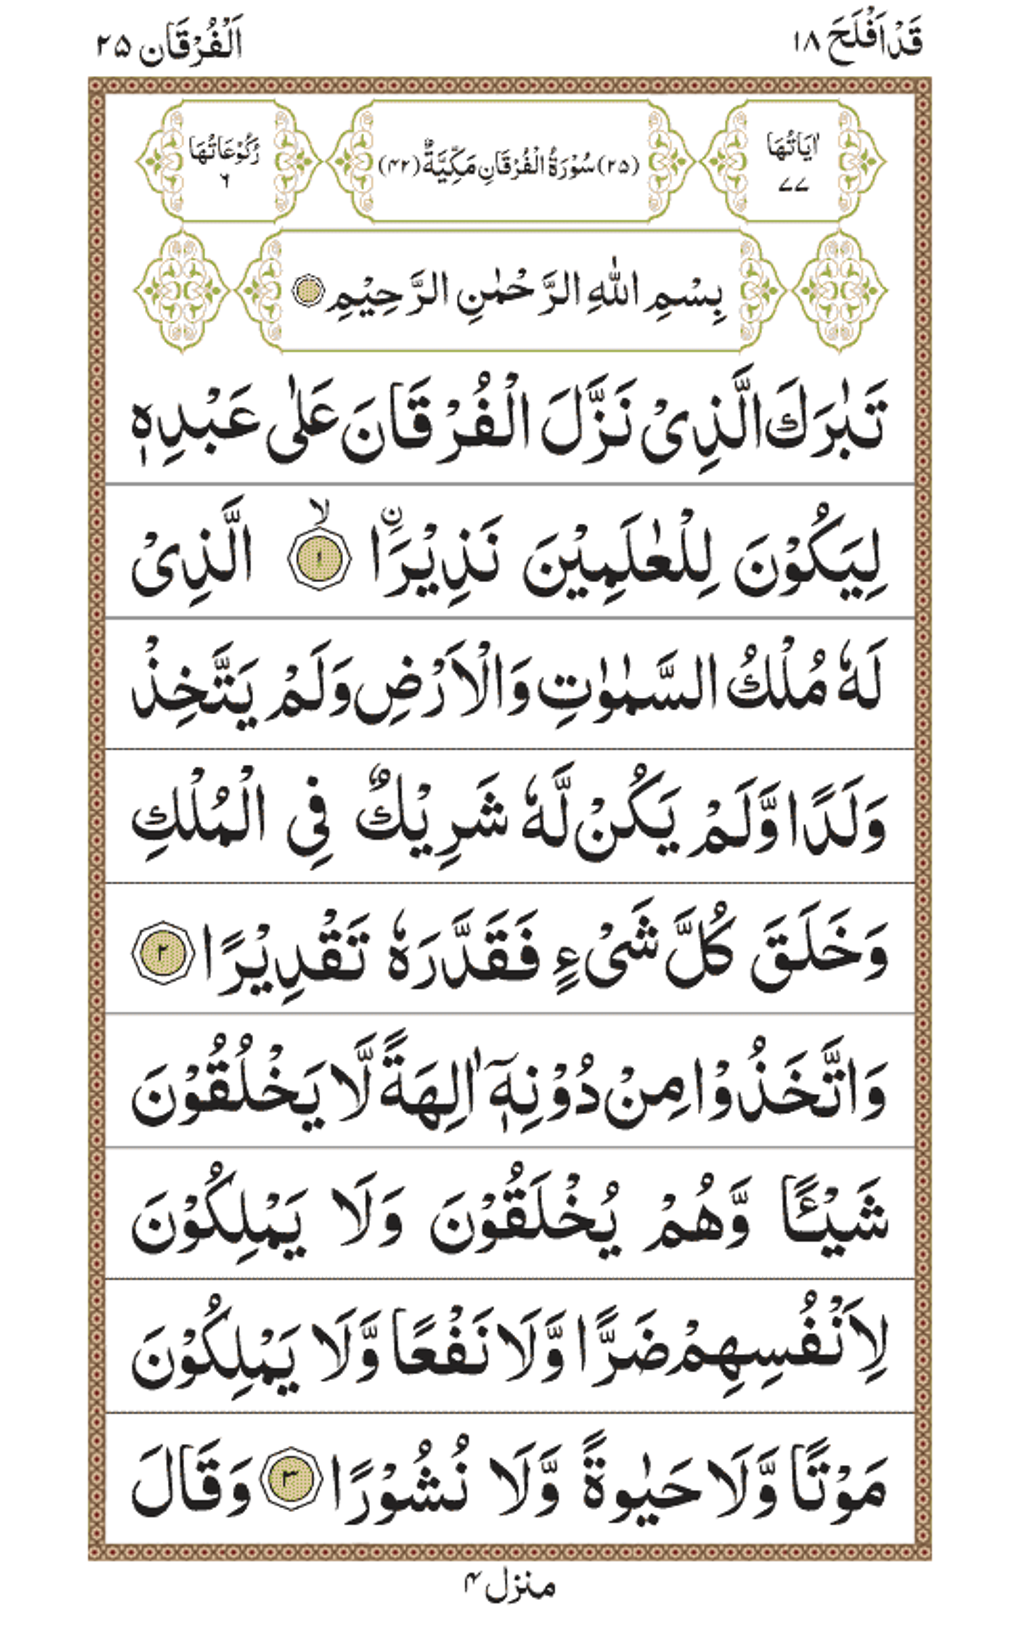 قَدْ اَفْلَحَ ١٨
اَلْفُرْقَان ٢٥
اٰيَاتُهَا ٧٧
(٢٥) سُوْرَةُ الْفُرْقَانِ مَكِّيَّةٌ (٤٢)
رُكُوْعَاتُهَا ٦
بِسْمِ اللّٰهِ الرَّحْمٰنِ الرَّحِيْمِ
تَبٰرَكَ الَّذِىْ نَزَّلَ الْفُرْقَانَ عَلٰى عَبْدِهٖ
لِيَكُوْنَ لِلْعٰلَمِيْنَ نَذِيْرَاۙۨ ١ الَّذِىْ
لَهٗ مُلْكُ السَّمٰوٰتِ وَالْاَرْضِ وَلَمْ يَتَّخِذْ
وَلَدًا وَّلَمْ يَكُنْ لَّهٗ شَرِيْكٌ فِى الْمُلْكِ
وَخَلَقَ كُلَّ شَىْءٍ فَقَدَّرَهٗ تَقْدِيْرًا ٢
وَاتَّخَذُوْا مِنْ دُوْنِهٖۤ اٰلِهَةً لَّا يَخْلُقُوْنَ
شَيْـًٔا وَّهُمْ يُخْلَقُوْنَ وَلَا يَمْلِكُوْنَ
لِاَنْفُسِهِمْ ضَرًّا وَّلَا نَفْعًا وَّلَا يَمْلِكُوْنَ
مَوْتًا وَّلَا حَيٰوةً وَّلَا نُشُوْرًا ٣ وَقَالَ
منزل ٤